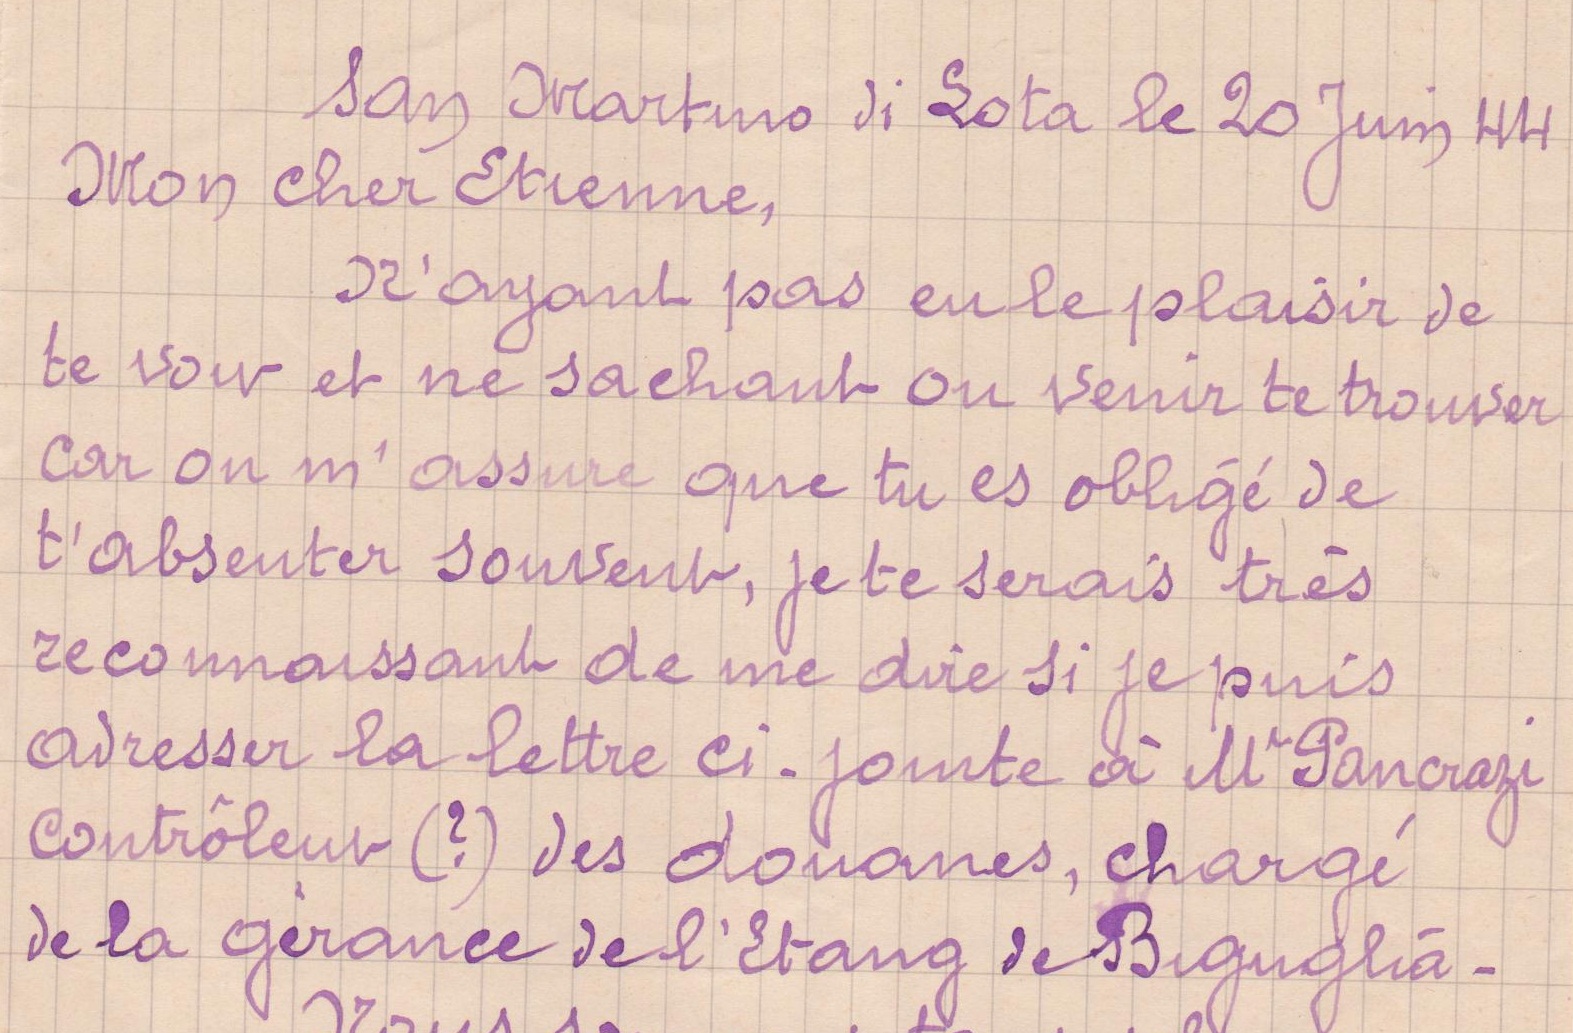 San Martino di Lota le 20 Juin 44
Mon cher Etienne,
N'ayant pas eu le plaisir de
te voir et ne sachant ou venir te trouver
car on m'assure que tu es obligé de
t'absenter souvent, je te serais très
reconnaissant de me dire si je puis
adresser la lettre ci-jointe à Mr Pancrazi
Contrôleur (?) des douanes, chargé
de la gérance de l'Etang de Biguglia -
Nous